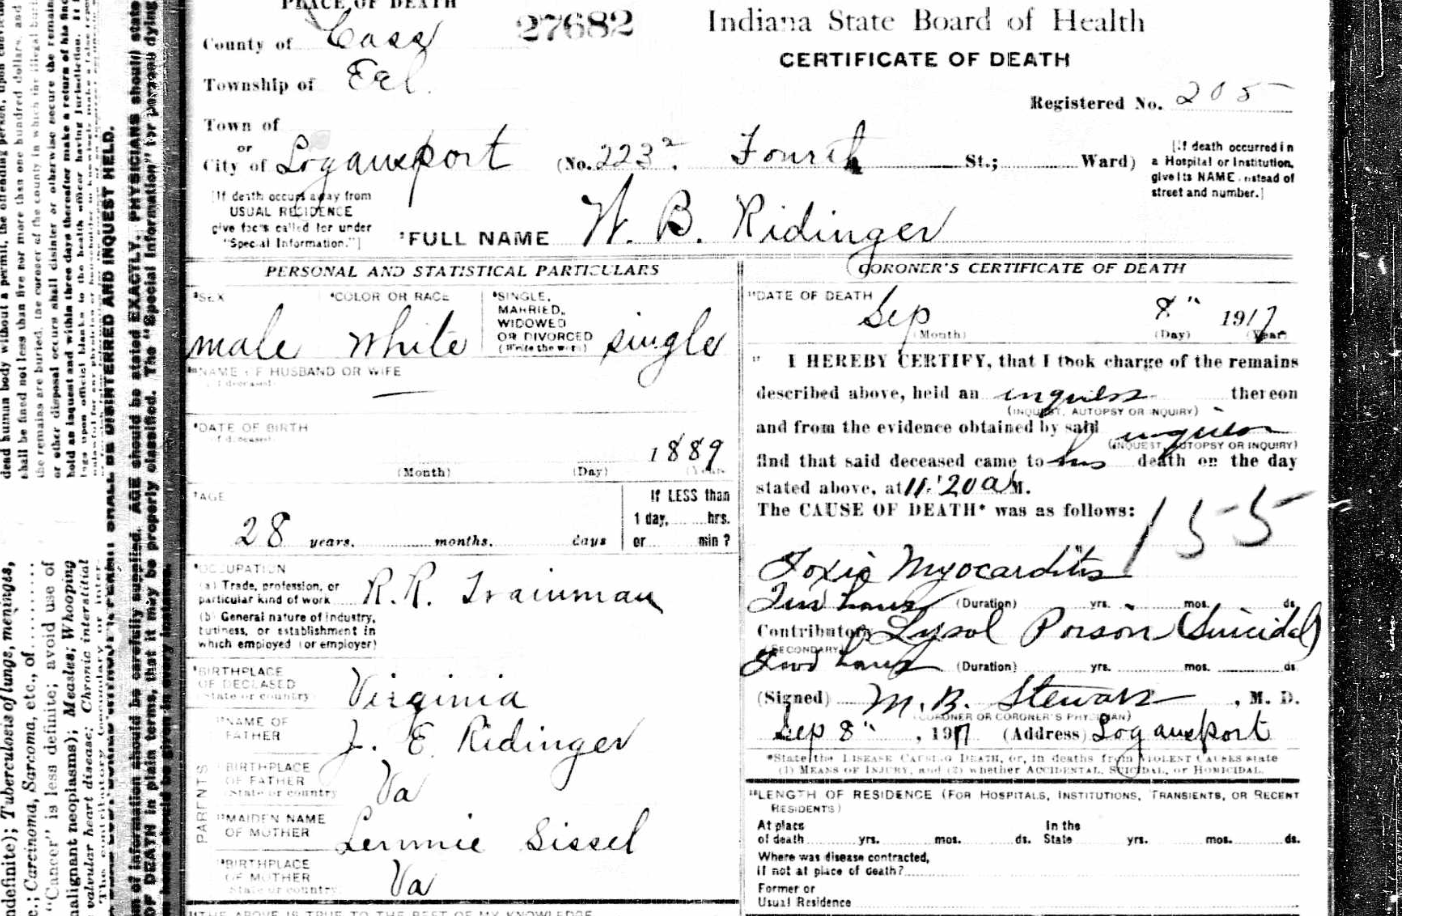 PLACE OF DEATH
County of Cass
27682
Indiana State Board of Health
CERTIFICATE OF DEATH
Township of Eel
Registered No. 205
Town of
or
City of Logansport (No. 223 Fourth St.; Ward)
[If death occurred in
a Hospital or Institution,
give its NAME instead of
street and number.]
[If death occurs away from
USUAL RESIDENCE
give facts called for under
"Special Information."]
FULL NAME W. B. Ridinger
PERSONAL AND STATISTICAL PARTICULARS
SEX
male
COLOR OR RACE
white
SINGLE,
MARRIED,
WIDOWED
OR DIVORCED
(Write the word)
single
NAME OF HUSBAND OR WIFE
DATE OF BIRTH
1889
(Month) (Day) (Year)
AGE
28 years. months. days
If LESS than
1 day, hrs.
or min?
OCCUPATION
(a) Trade, profession, or
particular kind of work R. R. Trainman
(b) General nature of industry,
business, or establishment in
which employed (or employer)
BIRTHPLACE
OF DECEASED
State or country
Virginia
PARENTS
NAME OF
FATHER
J. E. Ridinger
BIRTHPLACE
OF FATHER
State or country
Va
MAIDEN NAME
OF MOTHER
Lennie Sissel
BIRTHPLACE
OF MOTHER
State or country
Va
THE ABOVE IS TRUE TO THE BEST OF MY KNOWLEDGE
CORONER'S CERTIFICATE OF DEATH
DATE OF DEATH
Sep 8" 1917
(Month) (Day) (Year)
I HEREBY CERTIFY, that I took charge of the remains
described above, held an inquest thereon
(INQUEST, AUTOPSY OR INQUIRY)
and from the evidence obtained by said
(INQUEST, AUTOPSY OR INQUIRY)
find that said deceased came to his death on the day
stated above, at 11:20 a M.
The CAUSE OF DEATH* was as follows:
155
Toxic Myocarditis
Two hours (Duration) yrs. mos. ds.
Contributory Lysol Poison (Suicidal)
(SECONDARY)
Two hours (Duration) yrs. mos. ds.
(Signed) M. B. Stewart, M. D.
(CORONER OR CORONER'S PHYSICIAN)
Sep 8", 1917 (Address) Logansport
*State the DISEASE CAUSING DEATH, or, in deaths from VIOLENT CAUSES state
(1) MEANS OF INJURY, and (2) whether ACCIDENTAL, SUICIDAL, or HOMICIDAL.
LENGTH OF RESIDENCE (FOR HOSPITALS, INSTITUTIONS, TRANSIENTS, OR RECENT
RESIDENTS)
At place In the
of death yrs. mos. ds. State yrs. mos. ds.
Where was disease contracted,
if not at place of death?
Former or
Usual Residence